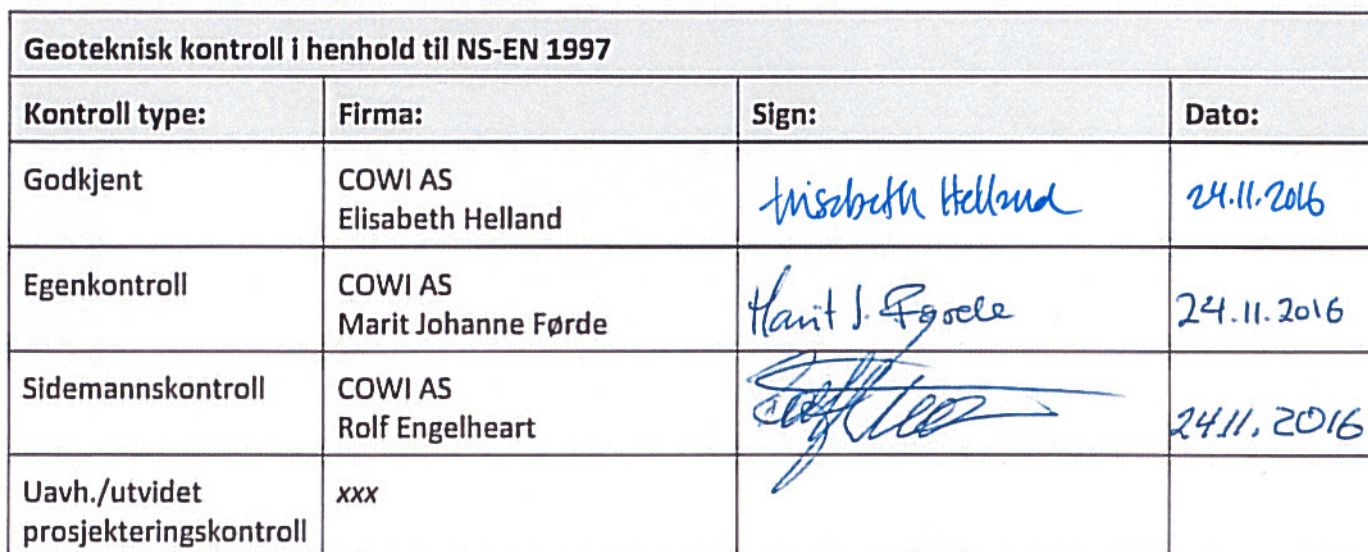 Geoteknisk kontroll i henhold til NS-EN 1997
Kontroll type: Firma: Sign: Dato:
Godkjent COWI AS
Elisabeth Helland Elisabeth Helland 24.11.2016
Egenkontroll COWI AS
Marit Johanne Førde Marit J. Førde 24.11.2016
Sidemannskontroll COWI AS
Rolf Engelheart 24.11.2016
Uavh./utvidet xxx
prosjekteringskontroll